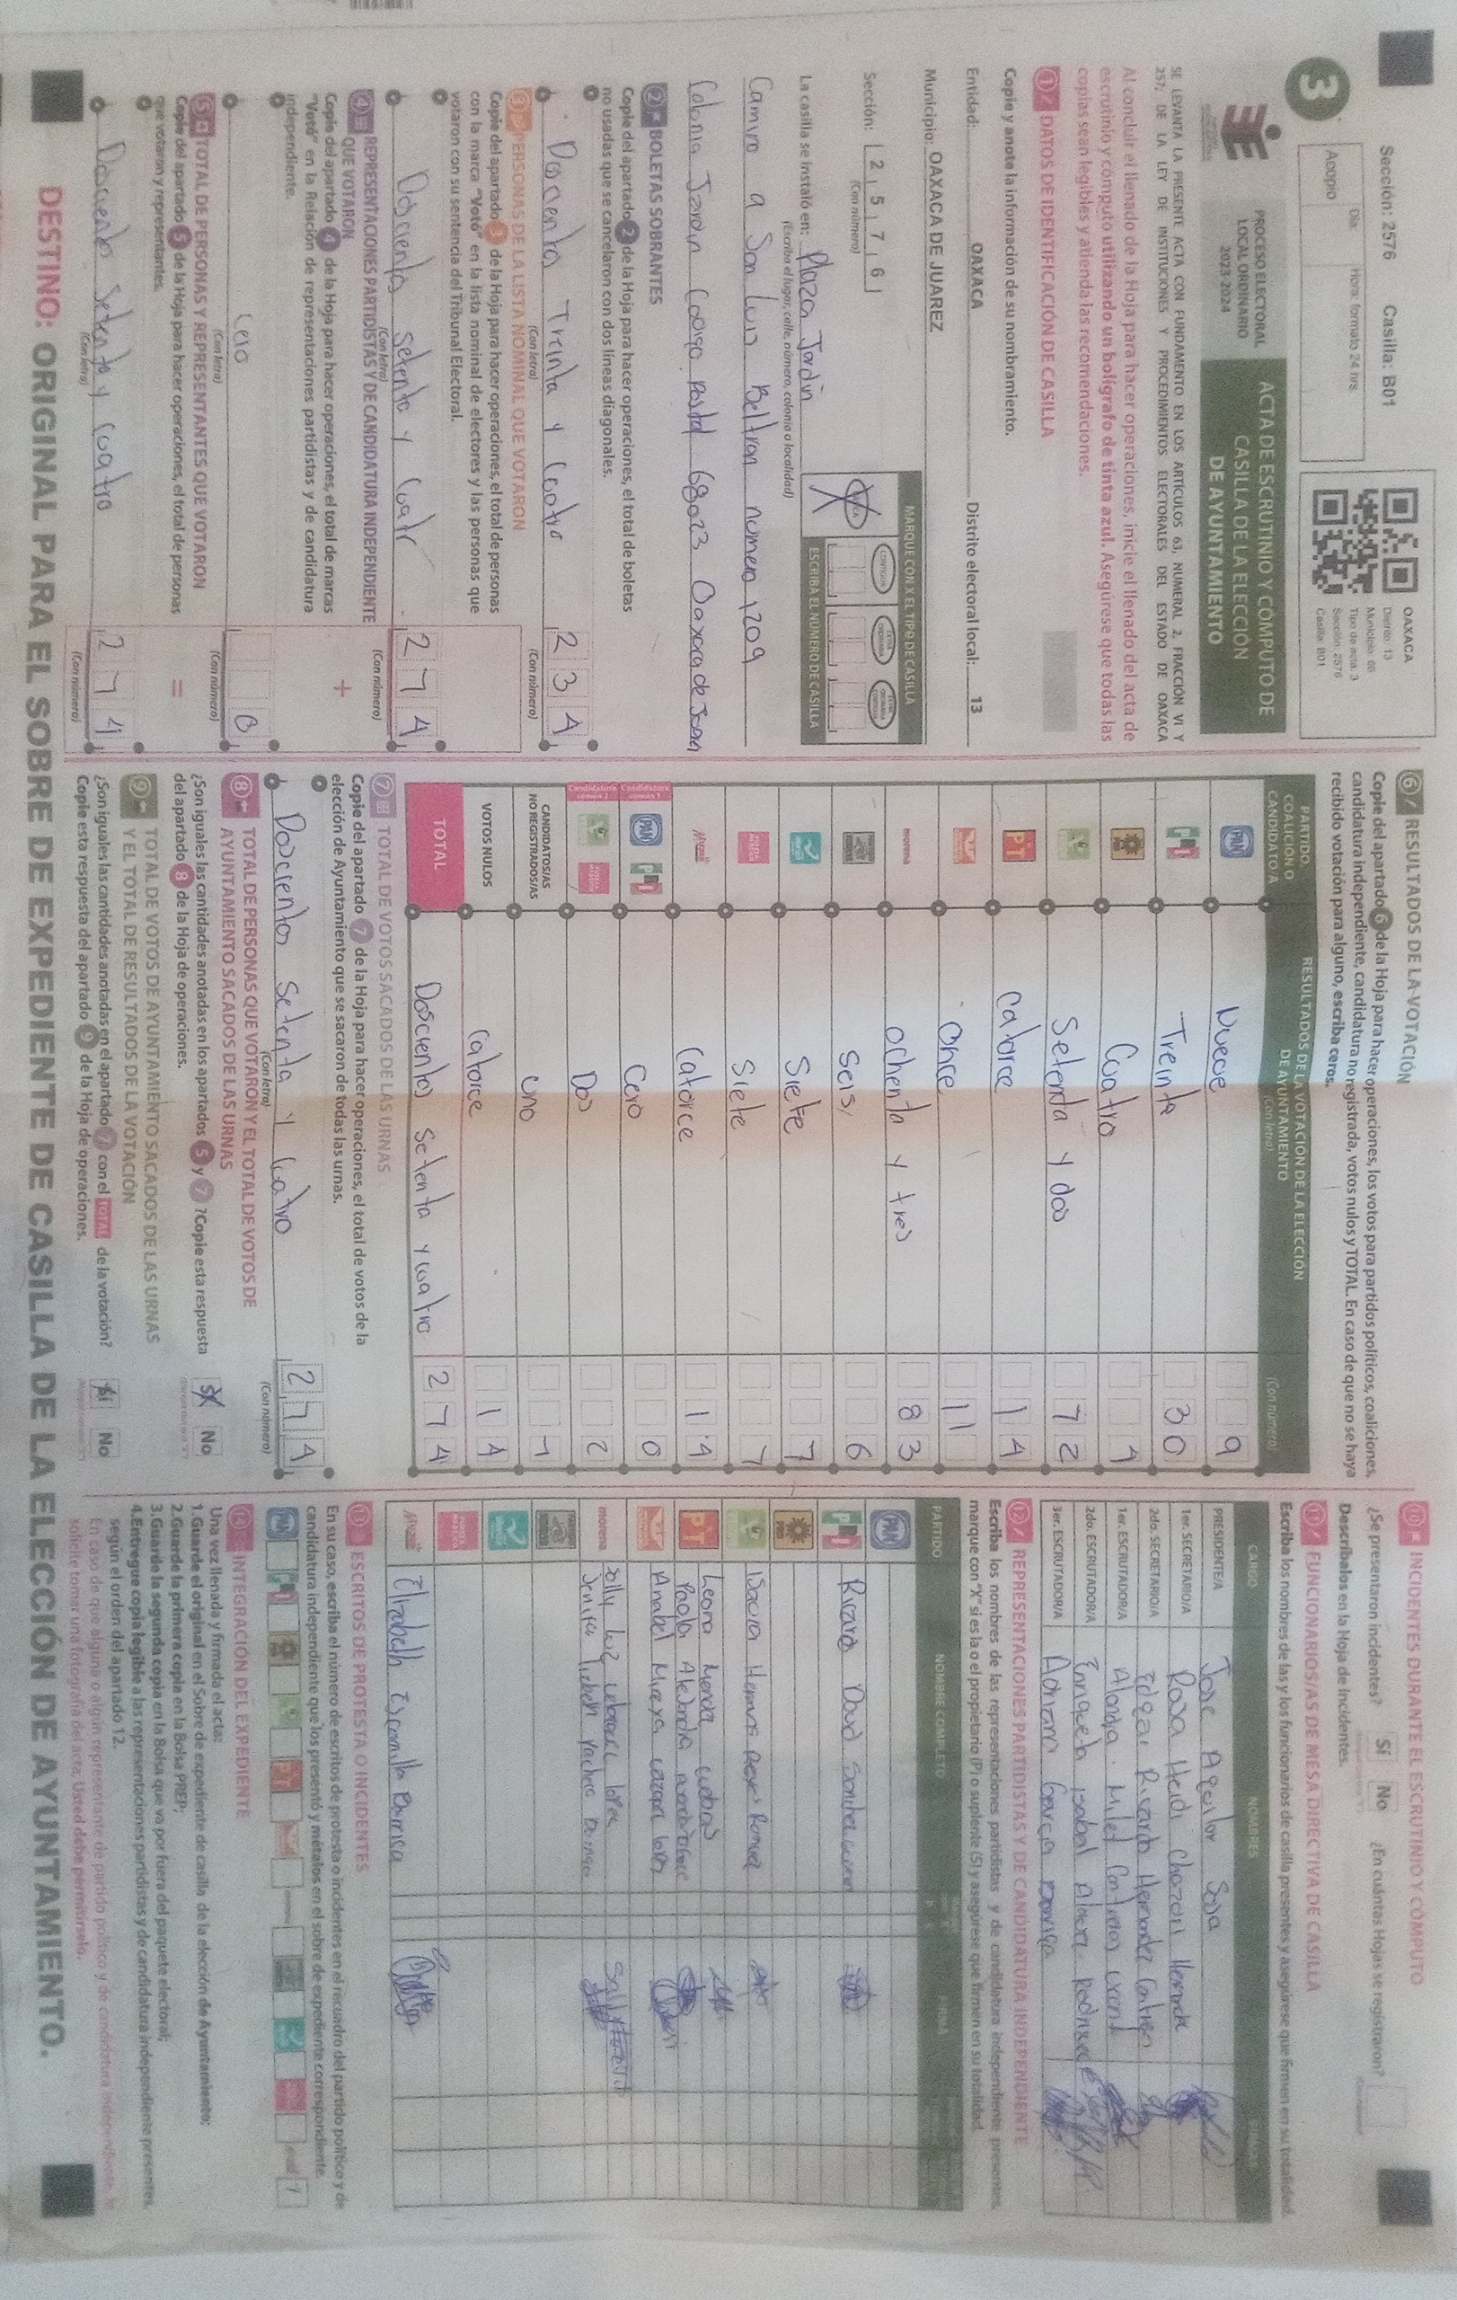 3
Sección: 2576 Casilla: B01
Acopio
Día:
Hora: formato 24 hrs.
OAXACA
Distrito: 13
Municipio: 66
Tipo de acta: 3
Sección: 2576
Casilla: B01
PROCESO ELECTORAL
LOCAL ORDINARIO
2023-2024
ACTA DE ESCRUTINIO Y CÓMPUTO DE
CASILLA DE LA ELECCIÓN
DE AYUNTAMIENTO
SE LEVANTA LA PRESENTE ACTA CON FUNDAMENTO EN LOS ARTÍCULOS 63, NUMERAL 2, FRACCIÓN VI Y
257; DE LA LEY DE INSTITUCIONES Y PROCEDIMIENTOS ELECTORALES DEL ESTADO DE OAXACA
Al concluir el llenado de la Hoja para hacer operaciones, inicie el llenado del acta de
escrutinio y cómputo utilizando un bolígrafo de tinta azul. Asegúrese que todas las
copias sean legibles y atienda las recomendaciones.
1 DATOS DE IDENTIFICACIÓN DE CASILLA
Copie y anote la información de su nombramiento.
Entidad: OAXACA Distrito electoral local: 13
Municipio: OAXACA DE JUAREZ
Sección: 2 5 7 6
(Con número)
MARQUE CON X EL TIPO DE CASILLA
ESCRIBA EL NÚMERO DE CASILLA
La casilla se instaló en: Plaza Jardin
(Escriba el lugar, calle, número, colonia o localidad)
Camino a San Luis Beltran numero 1209
Colonia Jardin Codigo postal 68023 Oaxaca de Juan
2 BOLETAS SOBRANTES
Copie del apartado 2 de la Hoja para hacer operaciones, el total de boletas
no usadas que se cancelaron con dos líneas diagonales.
Docientos Treinta y Cuatro 2 3 4
(Con letra) (Con número)
3 PERSONAS DE LA LISTA NOMINAL QUE VOTARON
Copie del apartado 3 de la Hoja para hacer operaciones, el total de personas
con la marca "Votó" en la lista nominal de electores y las personas que
votaron con su sentencia del Tribunal Electoral.
Doscientos setenta y Cuatr 2 7 4
(Con letra) (Con número)
4 REPRESENTACIONES PARTIDISTAS Y DE CANDIDATURA INDEPENDIENTE
QUE VOTARON
Copie del apartado 4 de la Hoja para hacer operaciones, el total de marcas
"Votó" en la Relación de representaciones partidistas y de candidatura
independiente.
+
Cero 0
(Con letra) (Con número)
5 TOTAL DE PERSONAS Y REPRESENTANTES QUE VOTARON
Copie del apartado 5 de la Hoja para hacer operaciones, el total de personas
que votaron y representantes.
=
Docientos Setenta y Cuatro 2 7 4
(Con letra) (Con número)
6 RESULTADOS DE LA VOTACIÓN
Copie del apartado 6 de la Hoja para hacer operaciones, los votos para partidos políticos, coaliciones,
candidatura independiente, candidatura no registrada, votos nulos y TOTAL. En caso de que no se haya
recibido votación para alguno, escriba ceros.
PARTIDO,
COALICIÓN O
CANDIDATO/A
RESULTADOS DE LA VOTACIÓN DE LA ELECCIÓN
DE AYUNTAMIENTO
(Con letra)
(Con número)
PAN Nueve 9
PRI Treinta 30
PRD Cuatro 4
Setenta y dos 72
PT Catorce 14
Once 11
morena Ochenta y tres 83
Seis 6
Siete 7
Siete 7
Catorce 14
Candidatura común 1
PAN PRI Cero 0
Candidatura común 2
Dos 2
CANDIDATOS/AS
NO REGISTRADOS/AS uno 1
VOTOS NULOS Catorce 14
TOTAL Doscientos setenta y cuatro 274
7 TOTAL DE VOTOS SACADOS DE LAS URNAS
Copie del apartado 7 de la Hoja para hacer operaciones, el total de votos de la
elección de Ayuntamiento que se sacaron de todas las urnas.
Doscientos setenta y Cuatro 2 7 4
(Con letra) (Con número)
8 TOTAL DE PERSONAS QUE VOTARON Y EL TOTAL DE VOTOS DE
AYUNTAMIENTO SACADOS DE LAS URNAS
¿Son iguales las cantidades anotadas en los apartados 5 y 7? Copie esta respuesta
del apartado 8 de la Hoja de operaciones.
Sí No
9 TOTAL DE VOTOS DE AYUNTAMIENTO SACADOS DE LAS URNAS
Y EL TOTAL DE RESULTADOS DE LA VOTACIÓN
¿Son iguales las cantidades anotadas en el apartado 7 con el TOTAL de la votación?
Copie esta respuesta del apartado 9 de la Hoja de operaciones.
Sí No
10 INCIDENTES DURANTE EL ESCRUTINIO Y CÓMPUTO
¿Se presentaron incidentes? Sí No ¿En cuántas Hojas se registraron?
Descríbalos en la Hoja de Incidentes.
11 FUNCIONARIOS/AS DE MESA DIRECTIVA DE CASILLA
Escriba los nombres de las y los funcionarios de casilla presentes y asegúrese que firmen en su totalidad.
CARGO NOMBRES
PRESIDENTE/A Jose Aguilar Sosa
1er. SECRETARIO/A Rosa Heidi
2do. SECRETARIO/A Edgar Ricardo Hernandez
1er. ESCRUTADOR/A
2do. ESCRUTADOR/A Enriqueta Isabel
3er. ESCRUTADOR/A Garcia
12 REPRESENTACIONES PARTIDISTAS Y DE CANDIDATURA INDEPENDIENTE
Escriba los nombres de las representaciones partidistas y de candidatura independiente presentes,
marque con "X" si es la o el propietario (P) o suplente (S) y asegúrese que firmen en su totalidad.
PARTIDO NOMBRE COMPLETO FIRMA
PAN
PRI Ricardo David
PRD
Isaura
PT Leonor
Paola Alejandra
Anabel Mireya
morena
Elizabeth Barriga
13 ESCRITOS DE PROTESTA O INCIDENTES
En su caso, escriba el número de escritos de protesta o incidentes en el recuadro del partido político y de
candidatura independiente que los presentó y métalos en el sobre de expediente correspondiente.
14 INTEGRACIÓN DEL EXPEDIENTE
Una vez llenada y firmada el acta:
1. Guarde el original en el Sobre de expediente de casilla de la elección de Ayuntamiento;
2. Guarde la primera copia en la Bolsa PREP;
3. Guarde la segunda copia en la Bolsa que va por fuera del paquete electoral;
4. Entregue copia legible a las representaciones partidistas y de candidatura independiente presentes,
según el orden del apartado 12.
En caso de que alguna o algún representante de partido político y de candidatura independiente, le
solicite tomar una fotografía del acta, Usted debe permitírselo.
DESTINO: ORIGINAL PARA EL SOBRE DE EXPEDIENTE DE CASILLA DE LA ELECCIÓN DE AYUNTAMIENTO.